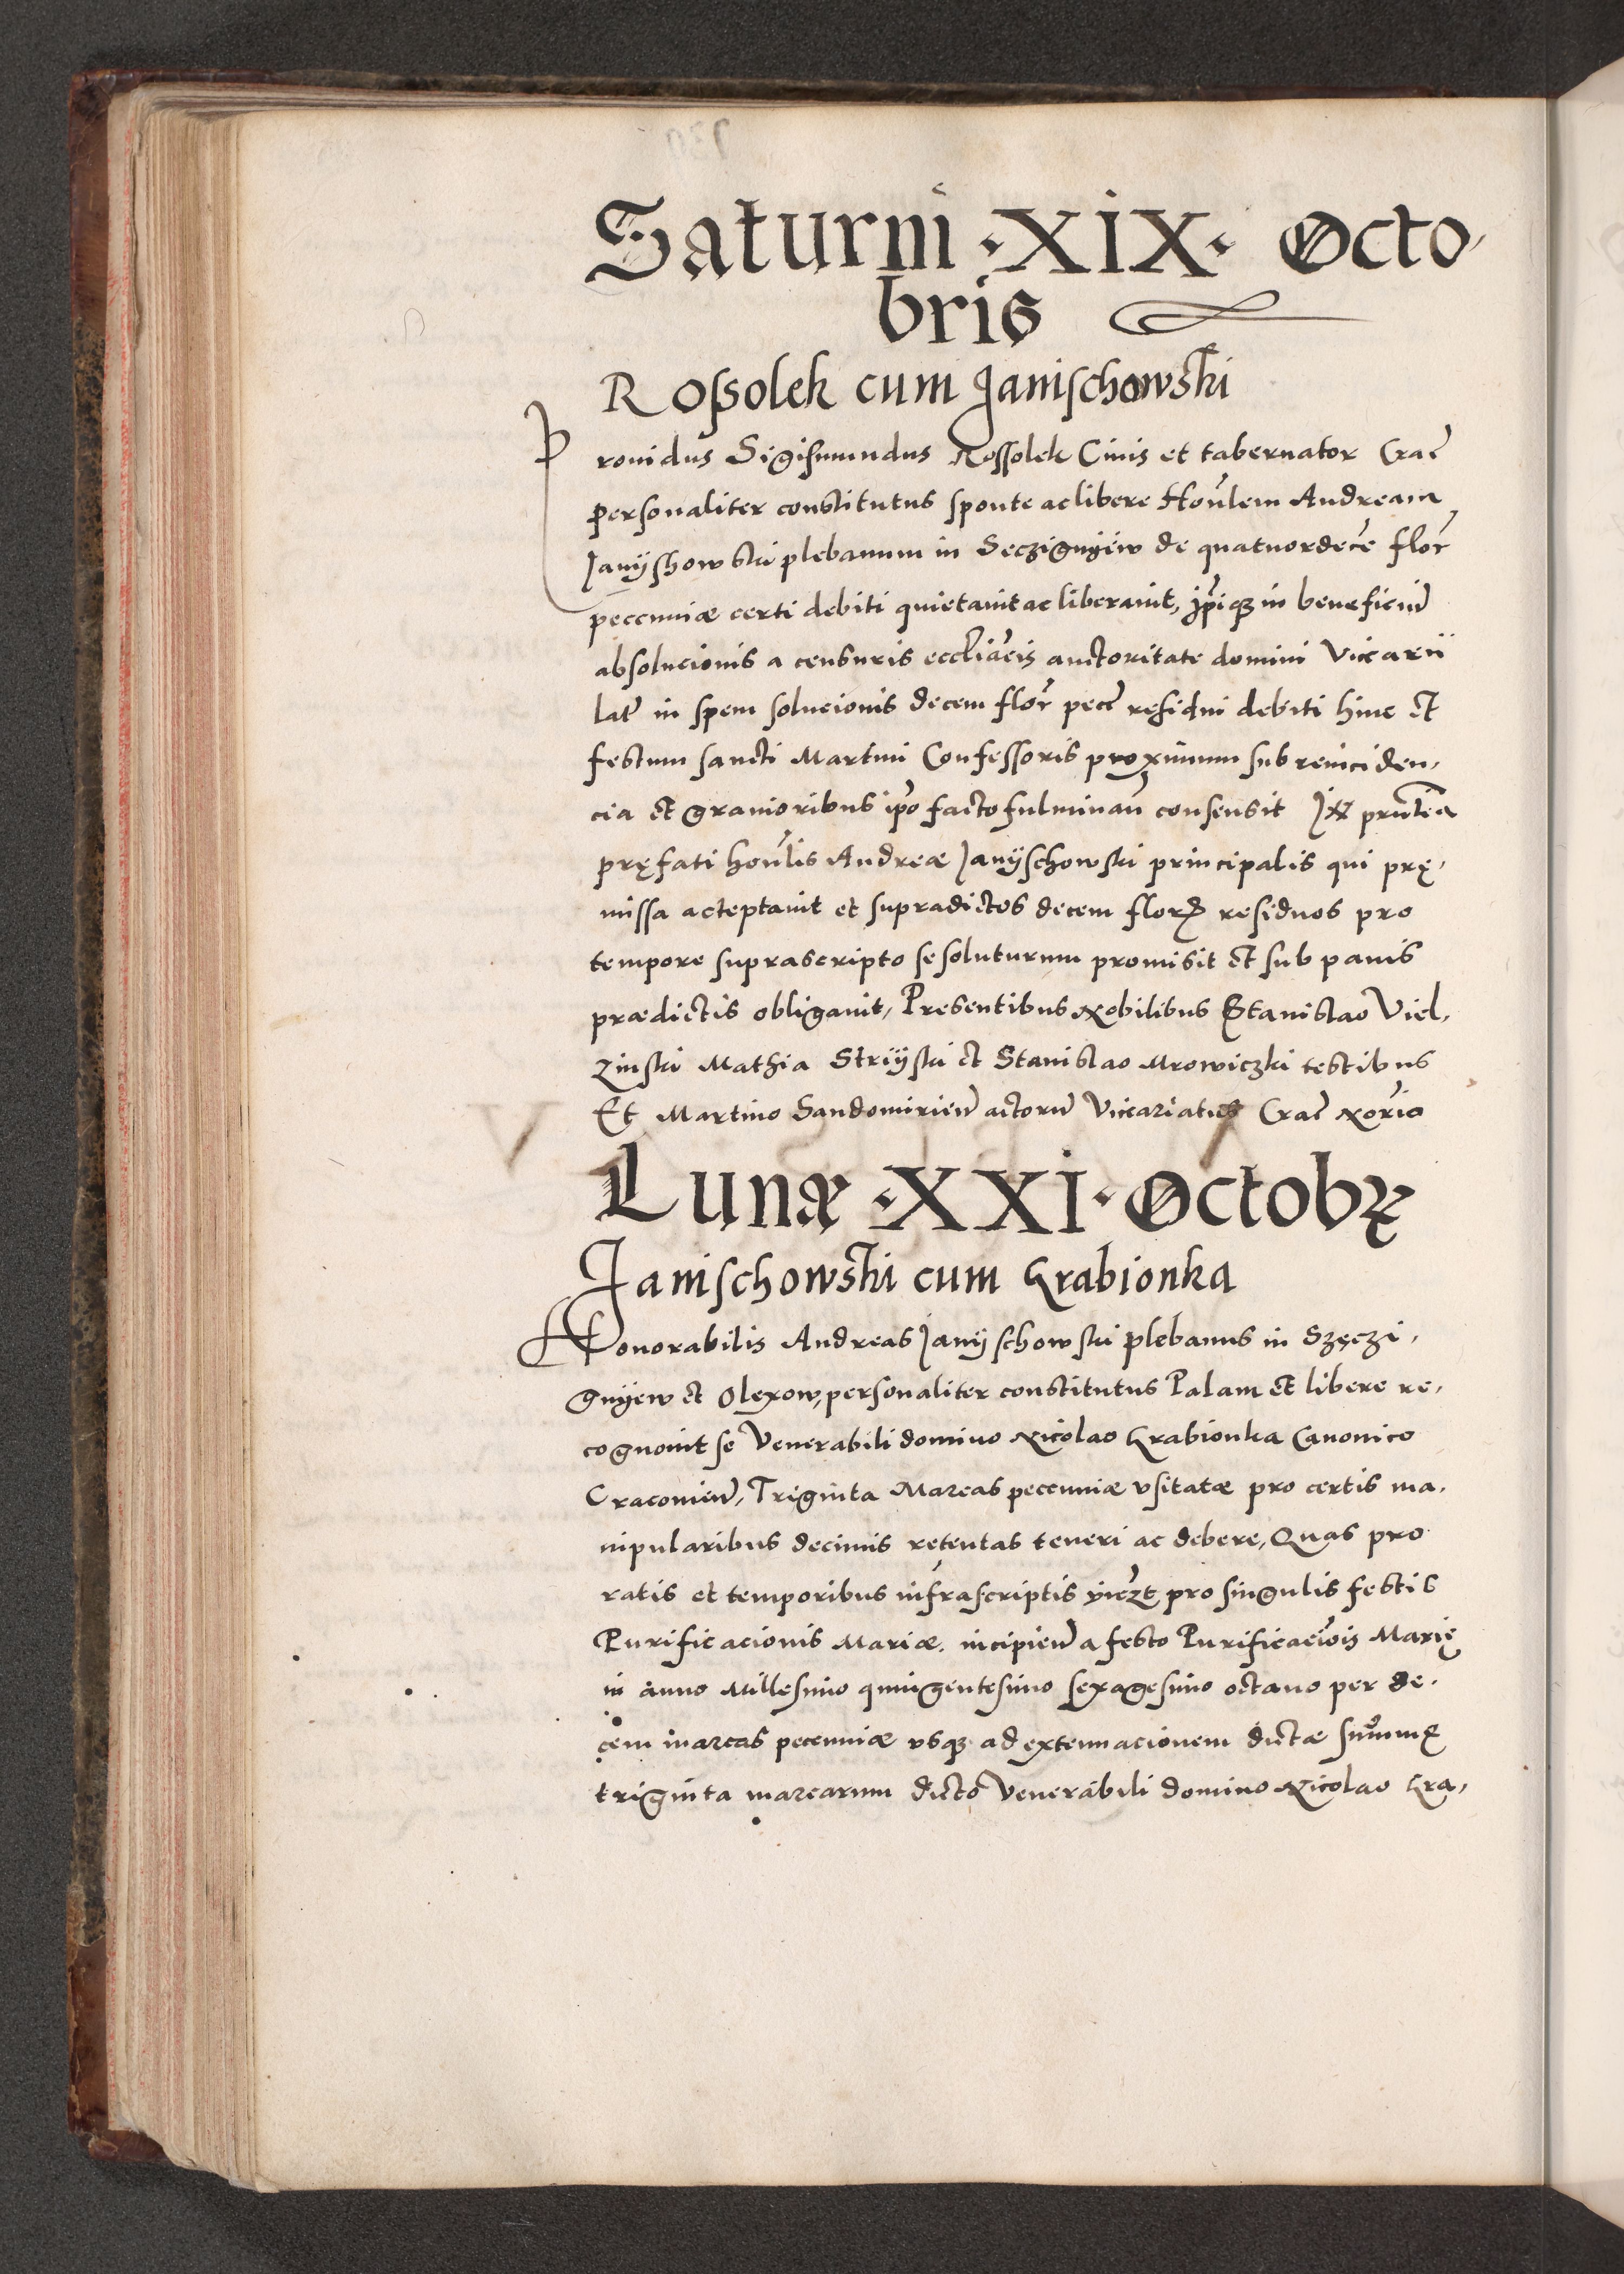 Saturni ·XIX· Octo,
bris
Rossolek cum Janischowski
Prouidus Sigismundus Rossolek Ciuis et tabernator Crac̃
personaliter constitutus sponte ac libere Hon̄lem Andream
Janÿshowski plebanum in Secziguÿew de quatuordecē flor̃
peccuniæ certi debiti quietauit ac liberauit, ip̄iq; in beneficiū
absolucionis a censuris eccl̄iācis auctoritate domini Vicarii
lat̃ in spem solucionis decem flor̃ pecc̃ residui debiti hinc et
festum sancti Martini Confessoris proximum sub reinciden,
cia et grauioribus ip̄o facto fulminan̄ consensit In pr̄ntia
pręfati hon̄lis Andreæ Janÿschowski principalis qui prę,
missa acceptauit et supradictos decem flor̃ residuos pro
tempore suprascripto se soluturum promisit et sub pœnis
prædictis obligauit, Presentibus Nobilibus Stanislao Viel,
zinski Mathia Strÿski et Stanislao Mrowiczki testibus
Et Martino Sandomirien̄ actorū Vicariatus Crac̃ Not̄rio
Lunæ ·XXI· Octobr̃
Janischowski cum Grabionka
Honorabilis Andreas Janÿschowski plebanus in Szęczi,
guÿew et Olexow, personaliter constitutus Palam et libere re,
cognouit se Venerabili domino Nicolao Grabionka Canonico
Cracouien̄, Triginta Marcas pecuniæ vsitatæ pro certis ma,
nipularibus decimis retentas teneri ac debere, Quas pro
ratis et temporibus infrascriptis pro singulis festis
Purificacionis Mariæ. incipien̄ a festo Purificaciōis Marię
in anno Millesimo quingentesimo sexagesimo octauo per de,
cem marcas pecuniæ vsq; ad extenuacionem dictæ summę
triginta marcarum dicto Venerabili domino Nicolao Gra,